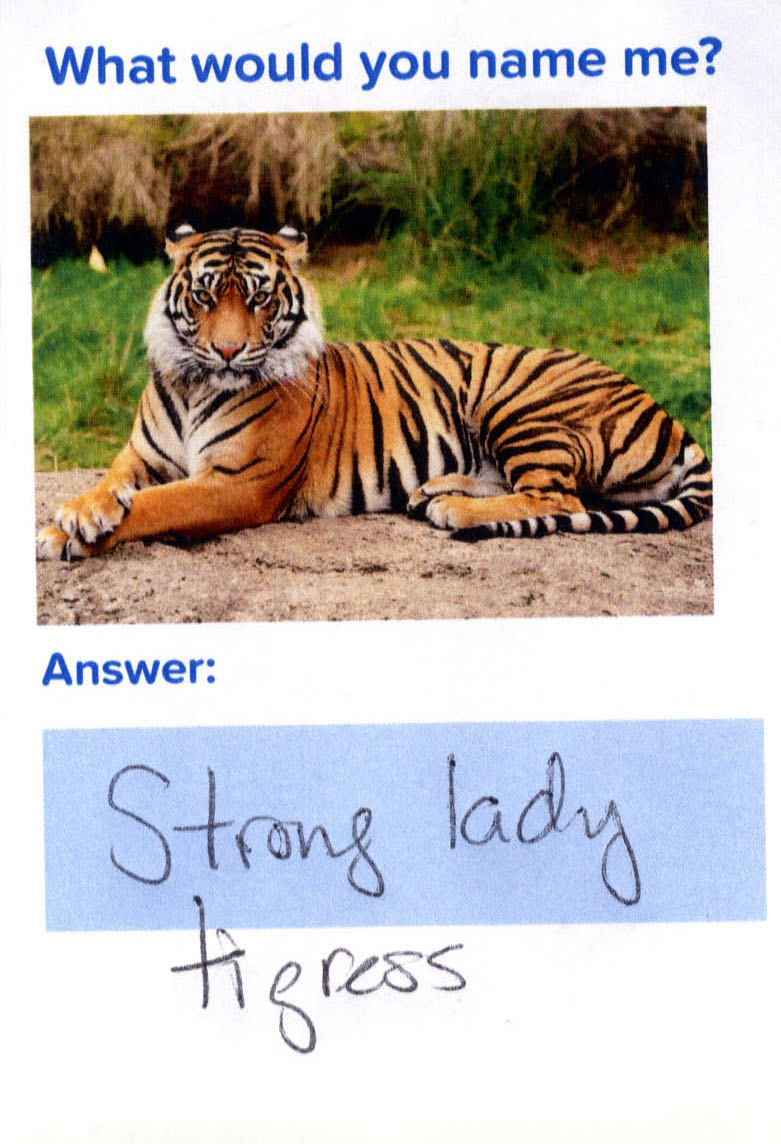 What would you name me?
Answer:
Strong lady
tigress